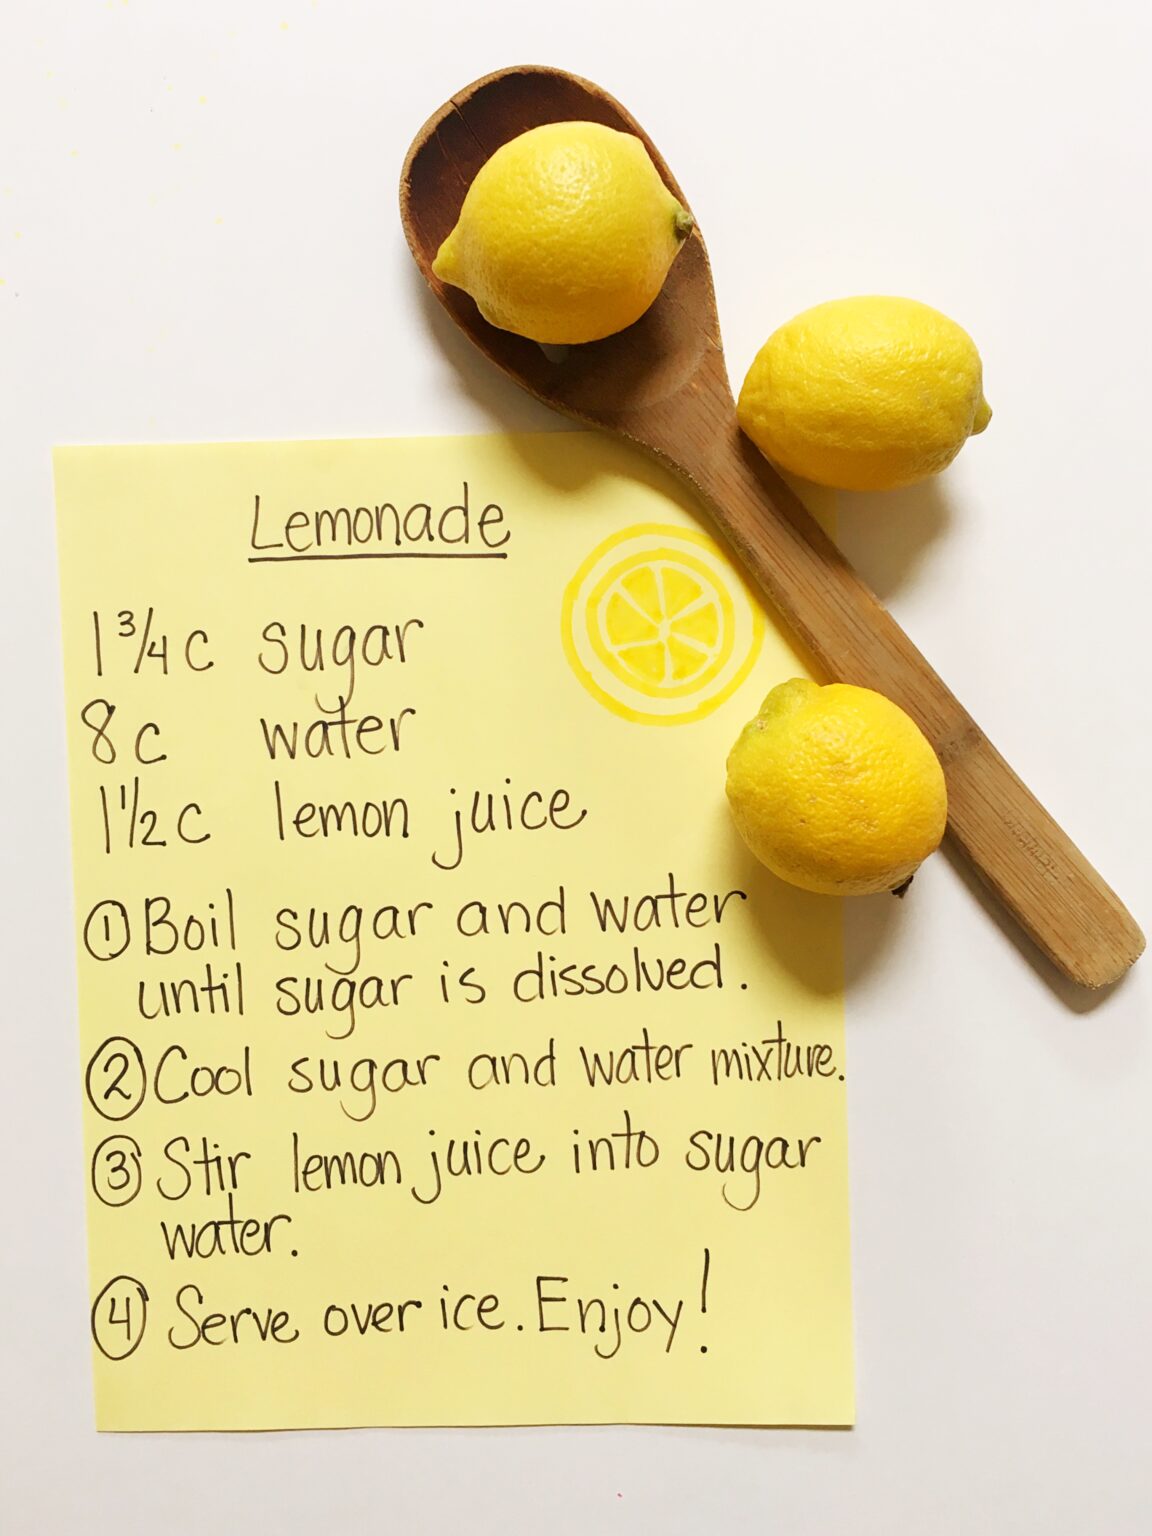 Lemonade
1 3/4 c sugar
8 c water
1 1/2 c lemon juice
① Boil sugar and water
until sugar is dissolved.
② Cool sugar and water mixture.
③ Stir lemon juice into sugar
water.
④ Serve over ice. Enjoy!